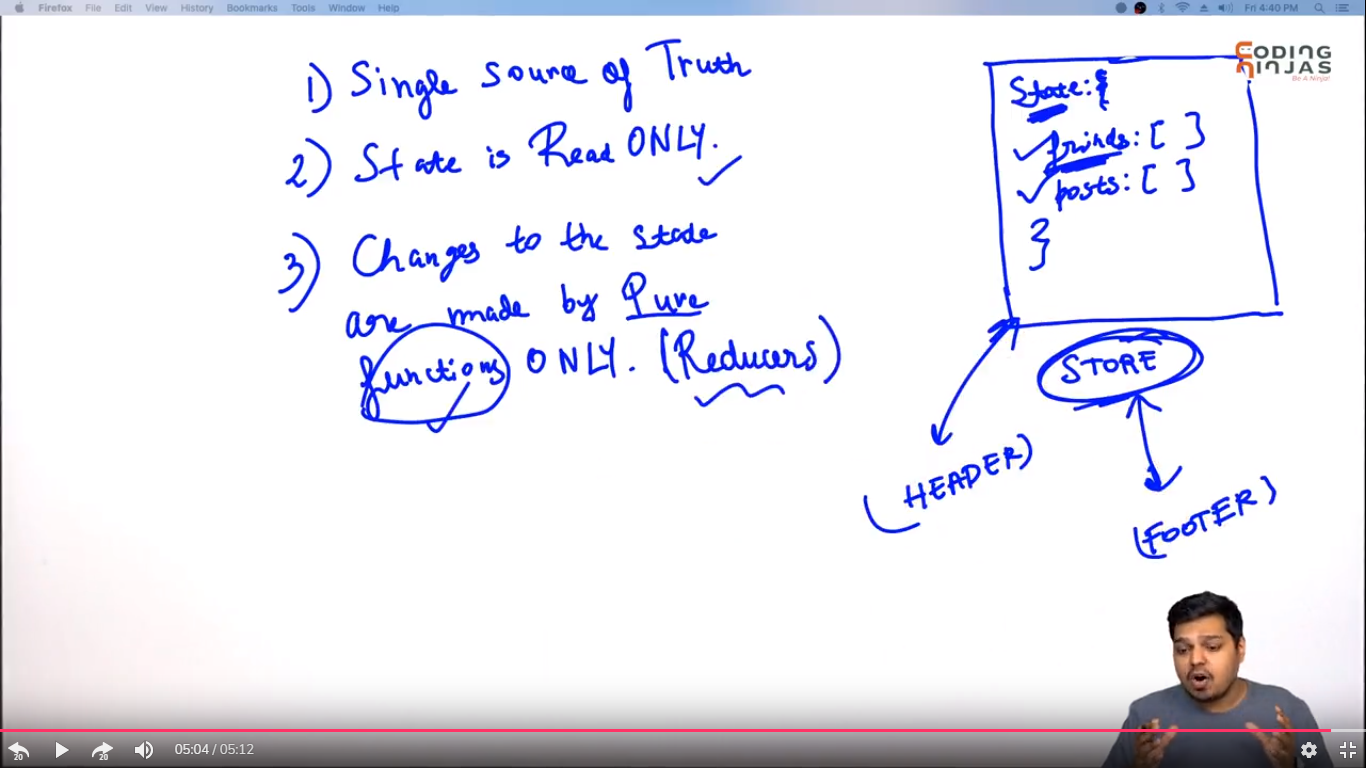 Firefox File Edit View History Bookmarks Tools Window Help
Fri 4:40 PM
CODING
NINJAS
Be A Ninja!
1) Single Source of Truth
2) State is Read ONLY.
3) Changes to the state
are made by Pure
functions ONLY. (Reducers)
State: {
friends: [ ]
posts: [ ]
}
STORE
(HEADER)
(FOOTER)
20
20
05:04 / 05:12